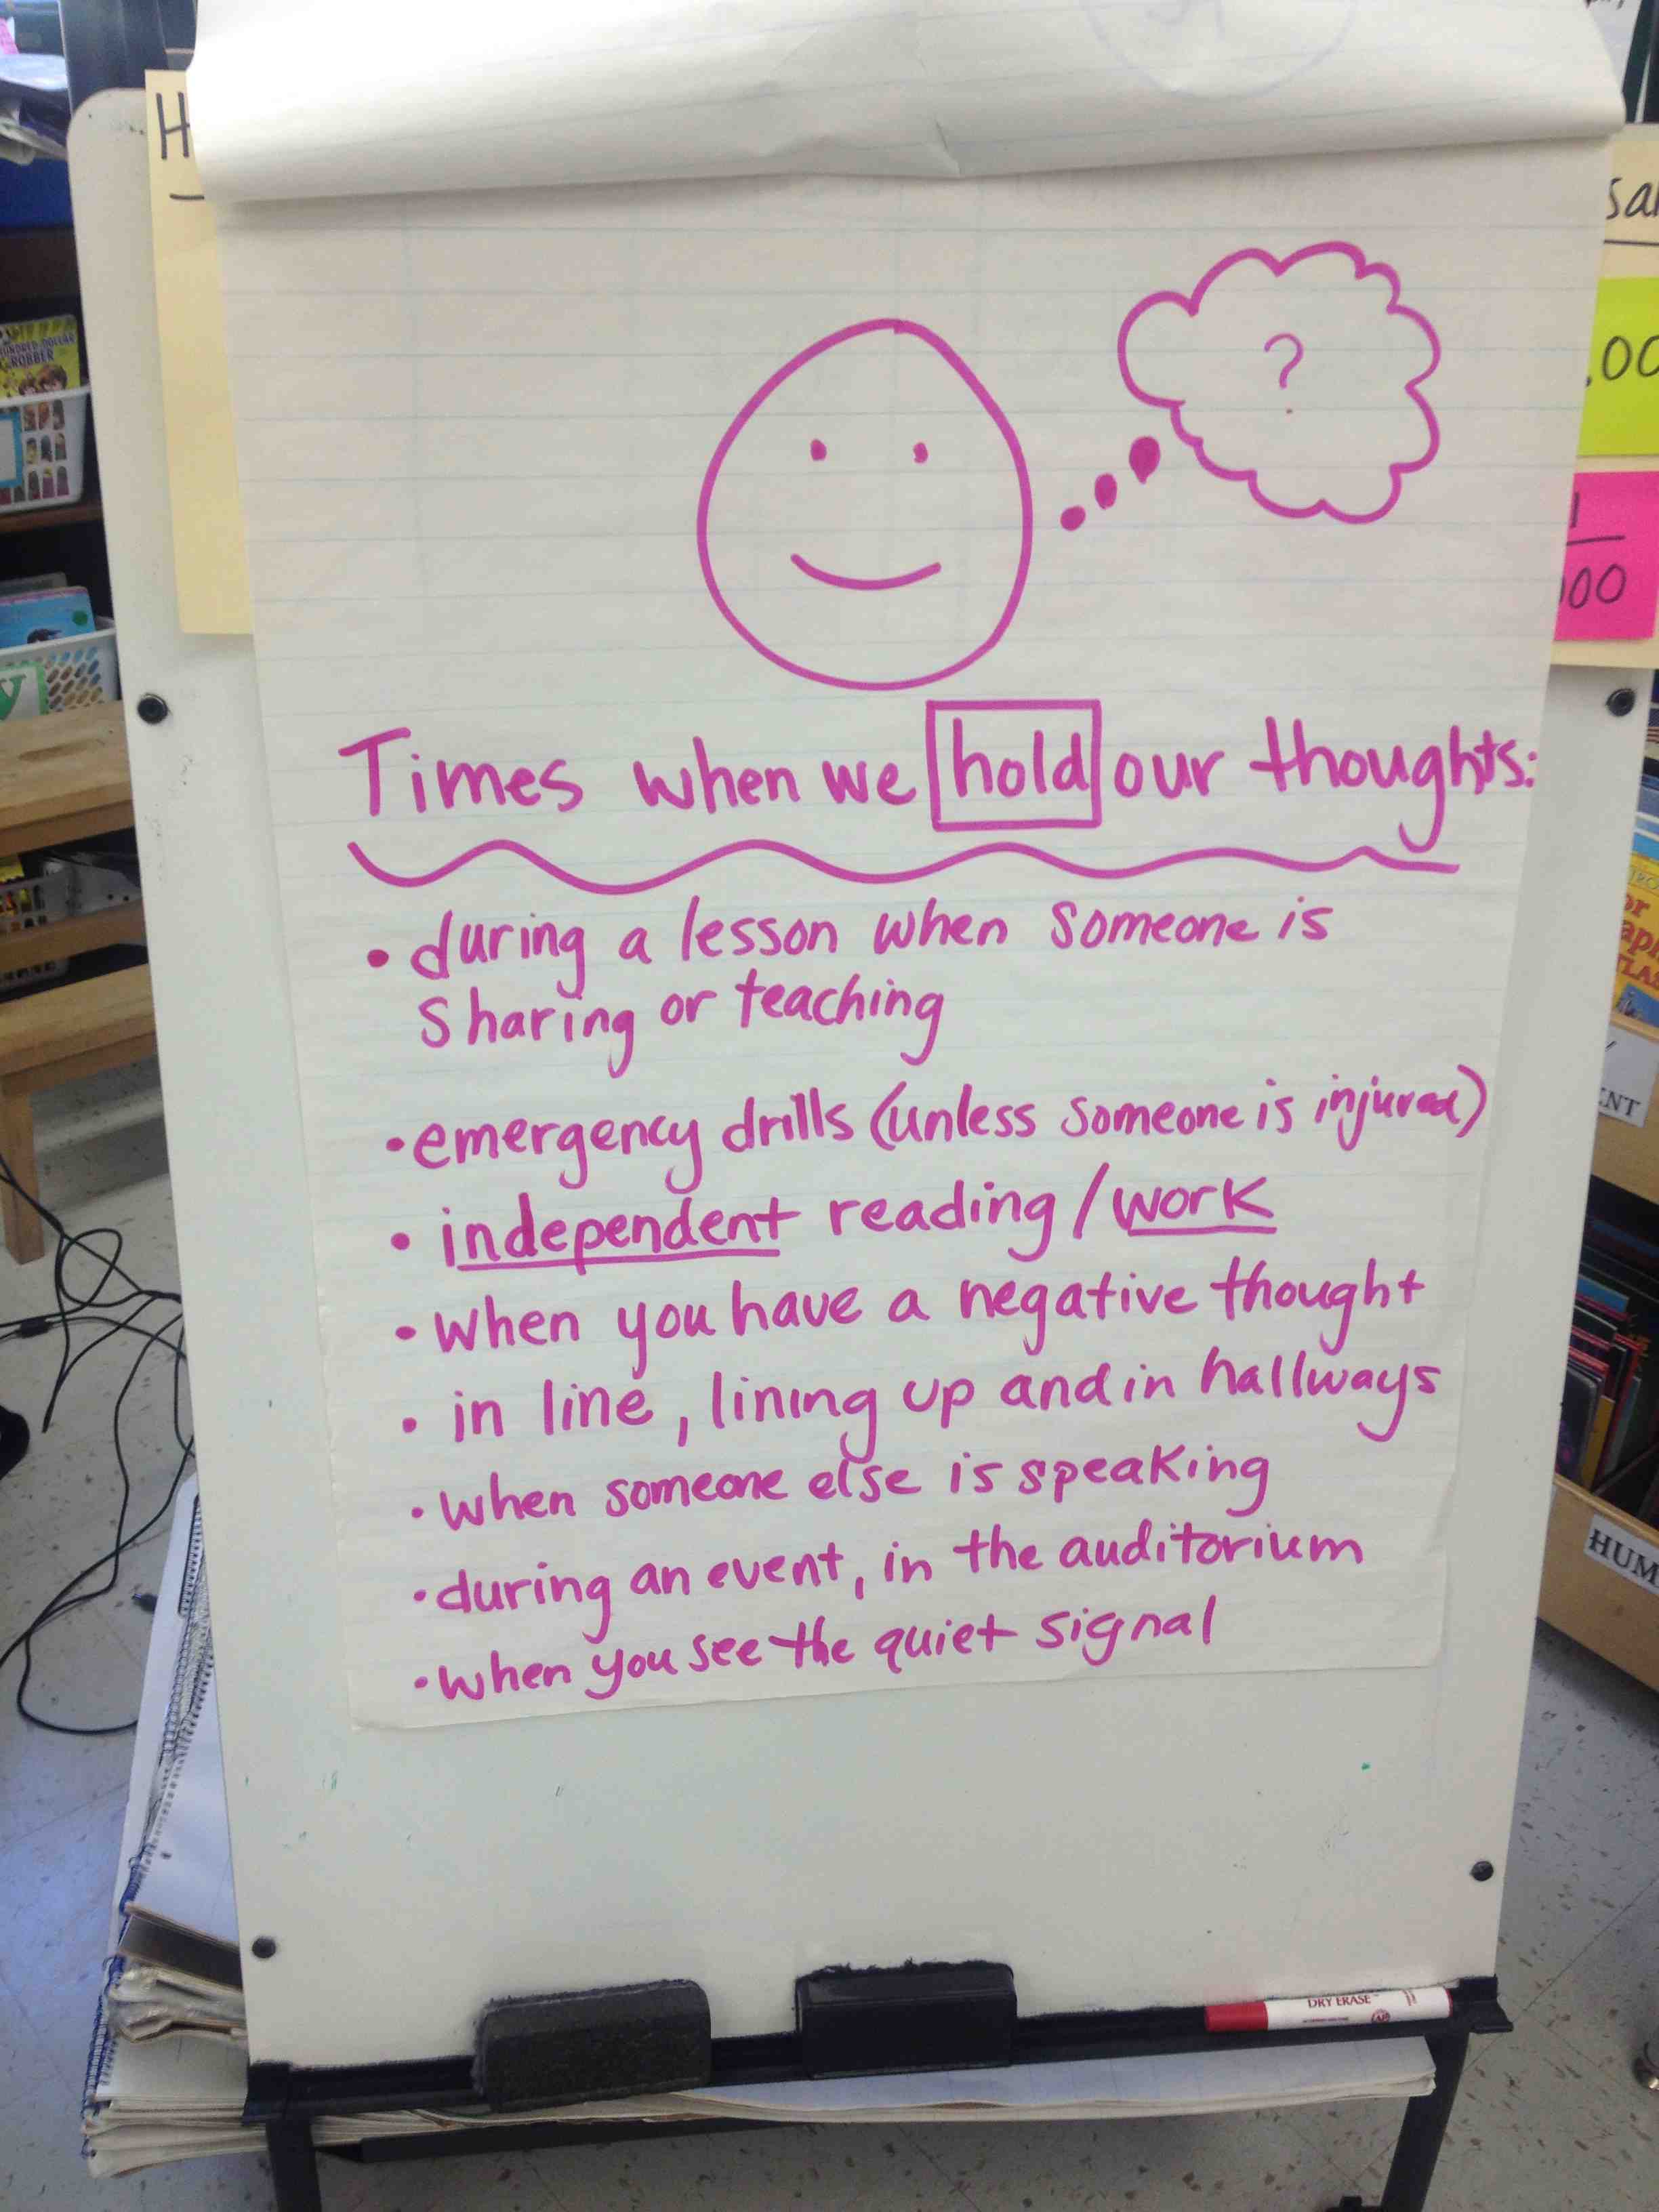 ?
Times when we hold our thoughts:
• during a lesson when someone is
sharing or teaching
• emergency drills (unless someone is injured)
• independent reading / work
• when you have a negative thought
• in line, lining up and in hallways
• when someone else is speaking
• during an event, in the auditorium
• when you see the quiet signal
DRY ERASE
AP
H
HUNDRED-DOLLAR
ROBBER
y
.00
1
HUM